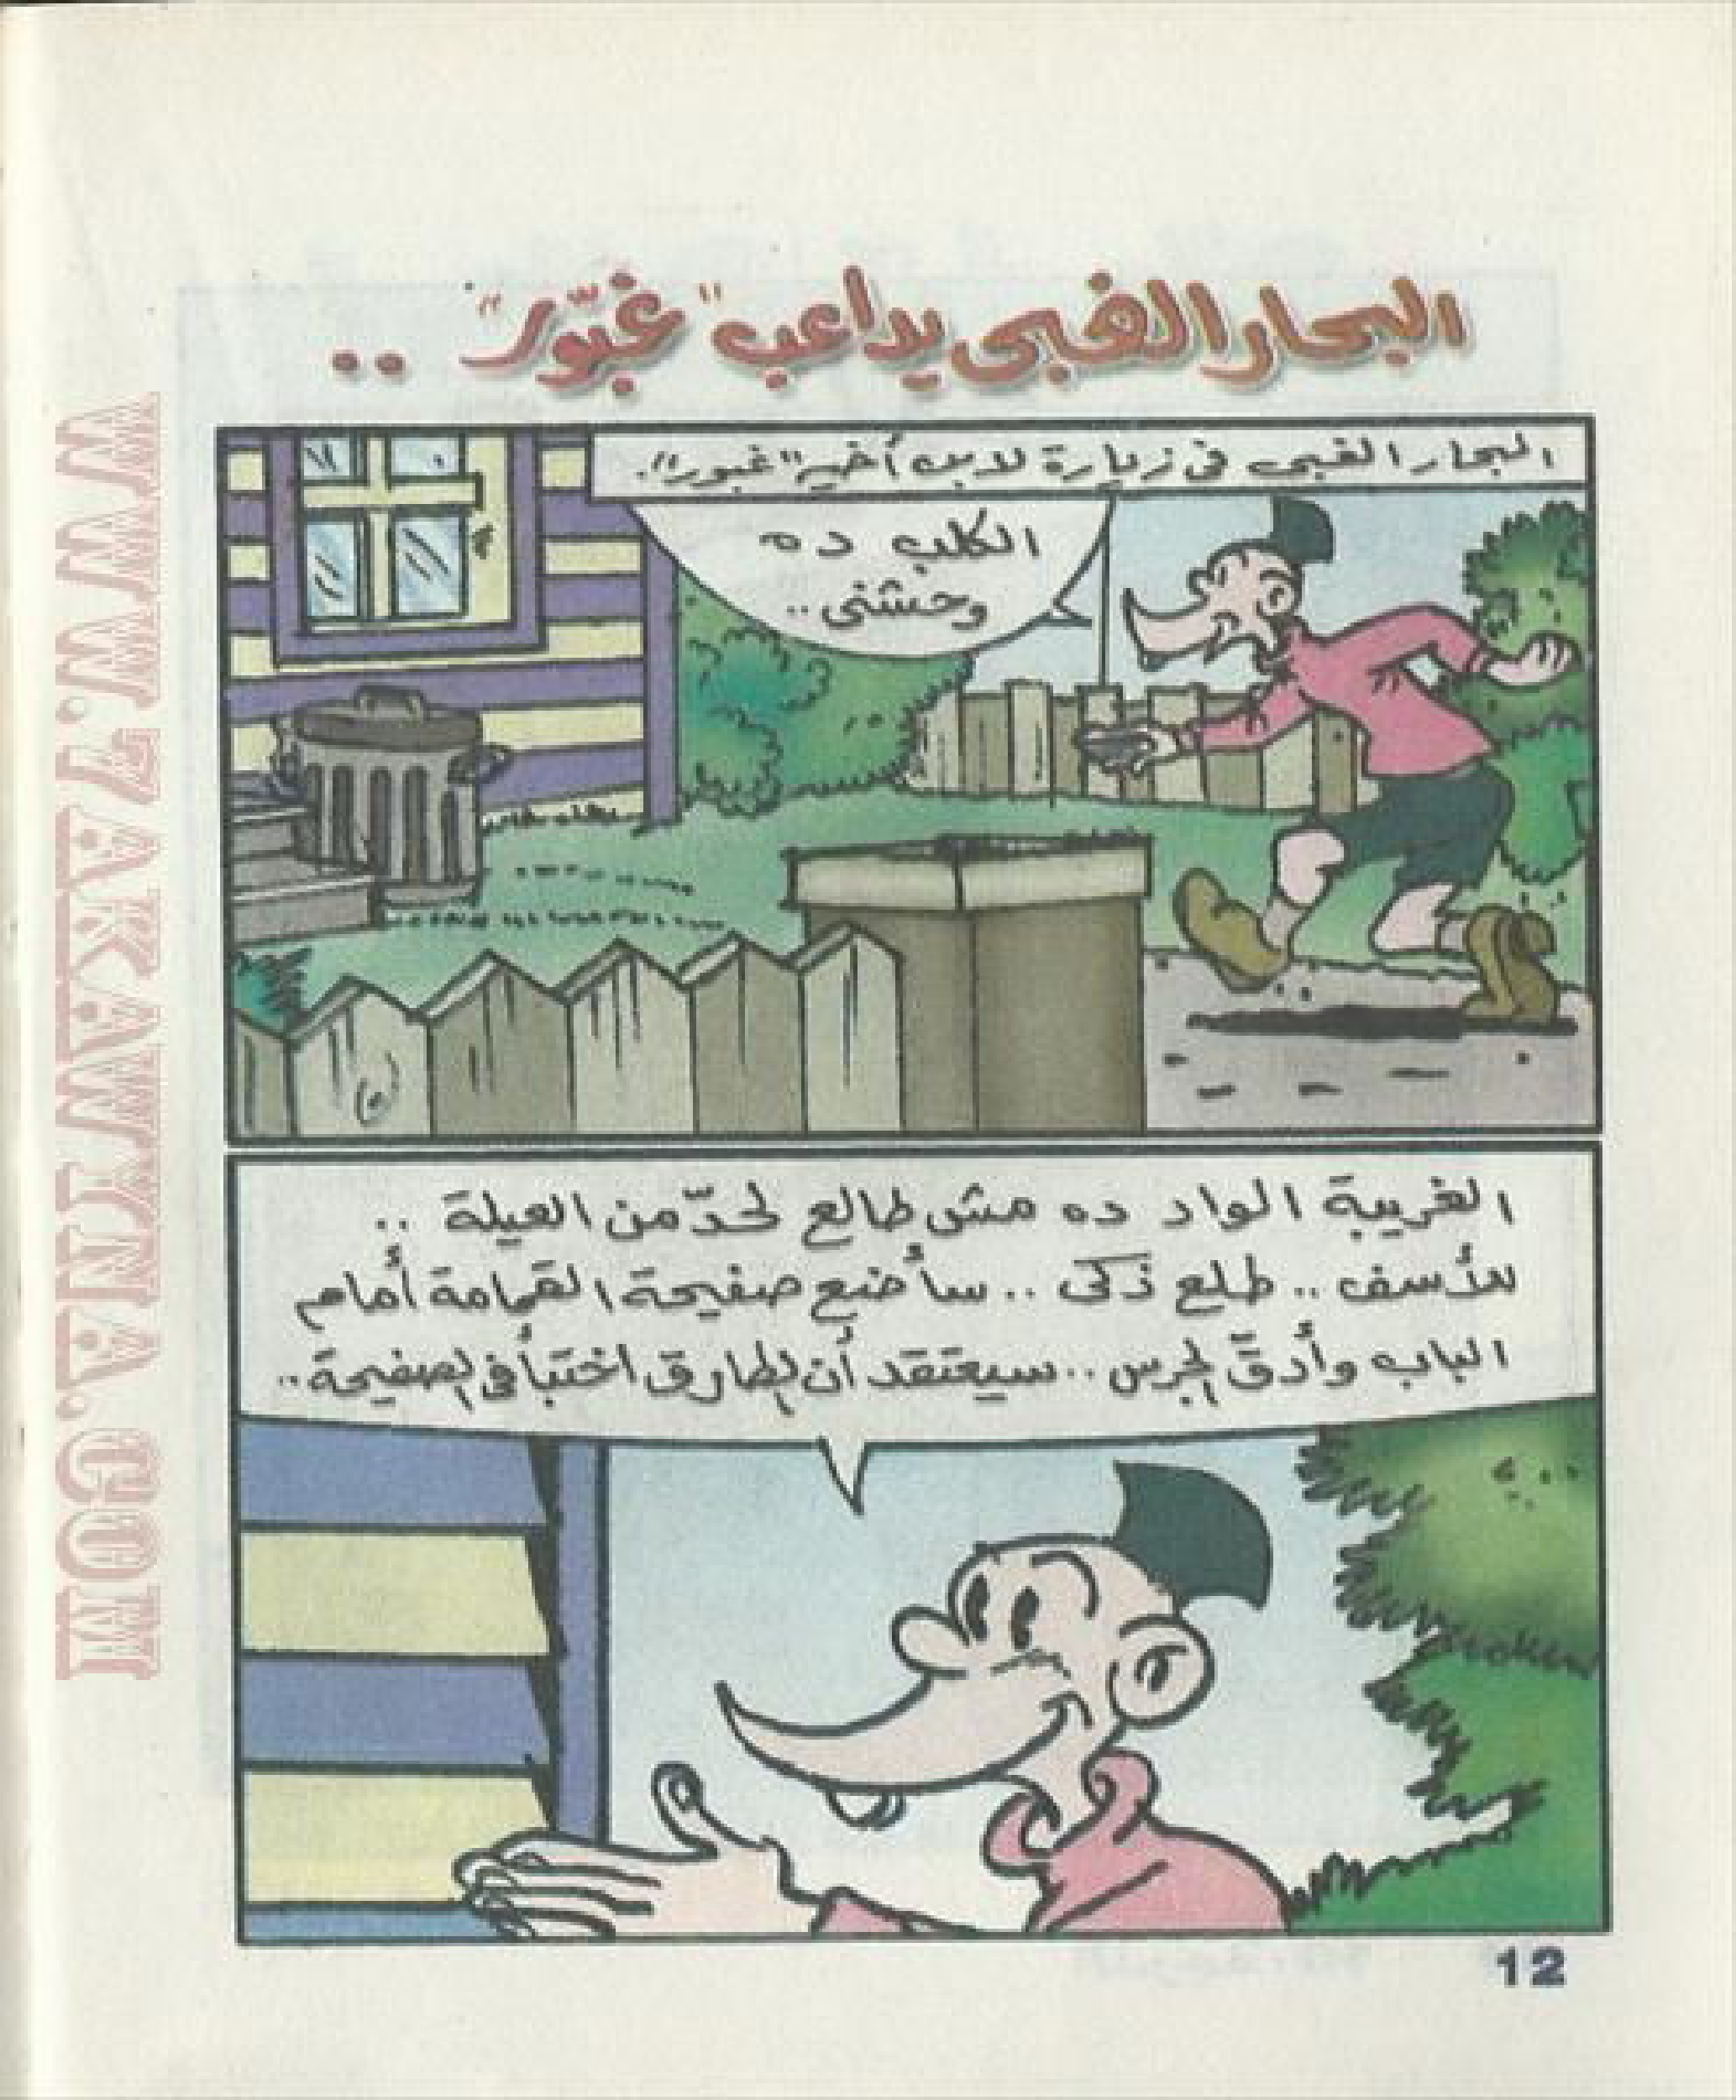 البحار الغبى يداعب "غبّور" ..
البحار الغبى فى زيارة لابن أخيه "غبور".
الكلب ده
وحشنى..
الغريبة الواد ده مش طالع لحدّ من العيلة ..
للأسف .. طلع ذكى .. سأضع صفيحة القمامة أمام
الباب وأدقّ الجرس .. سيعتقد أن الطارق اختبأ فى الصفيحة ..
12
WWW.7AKAWTNA.COM